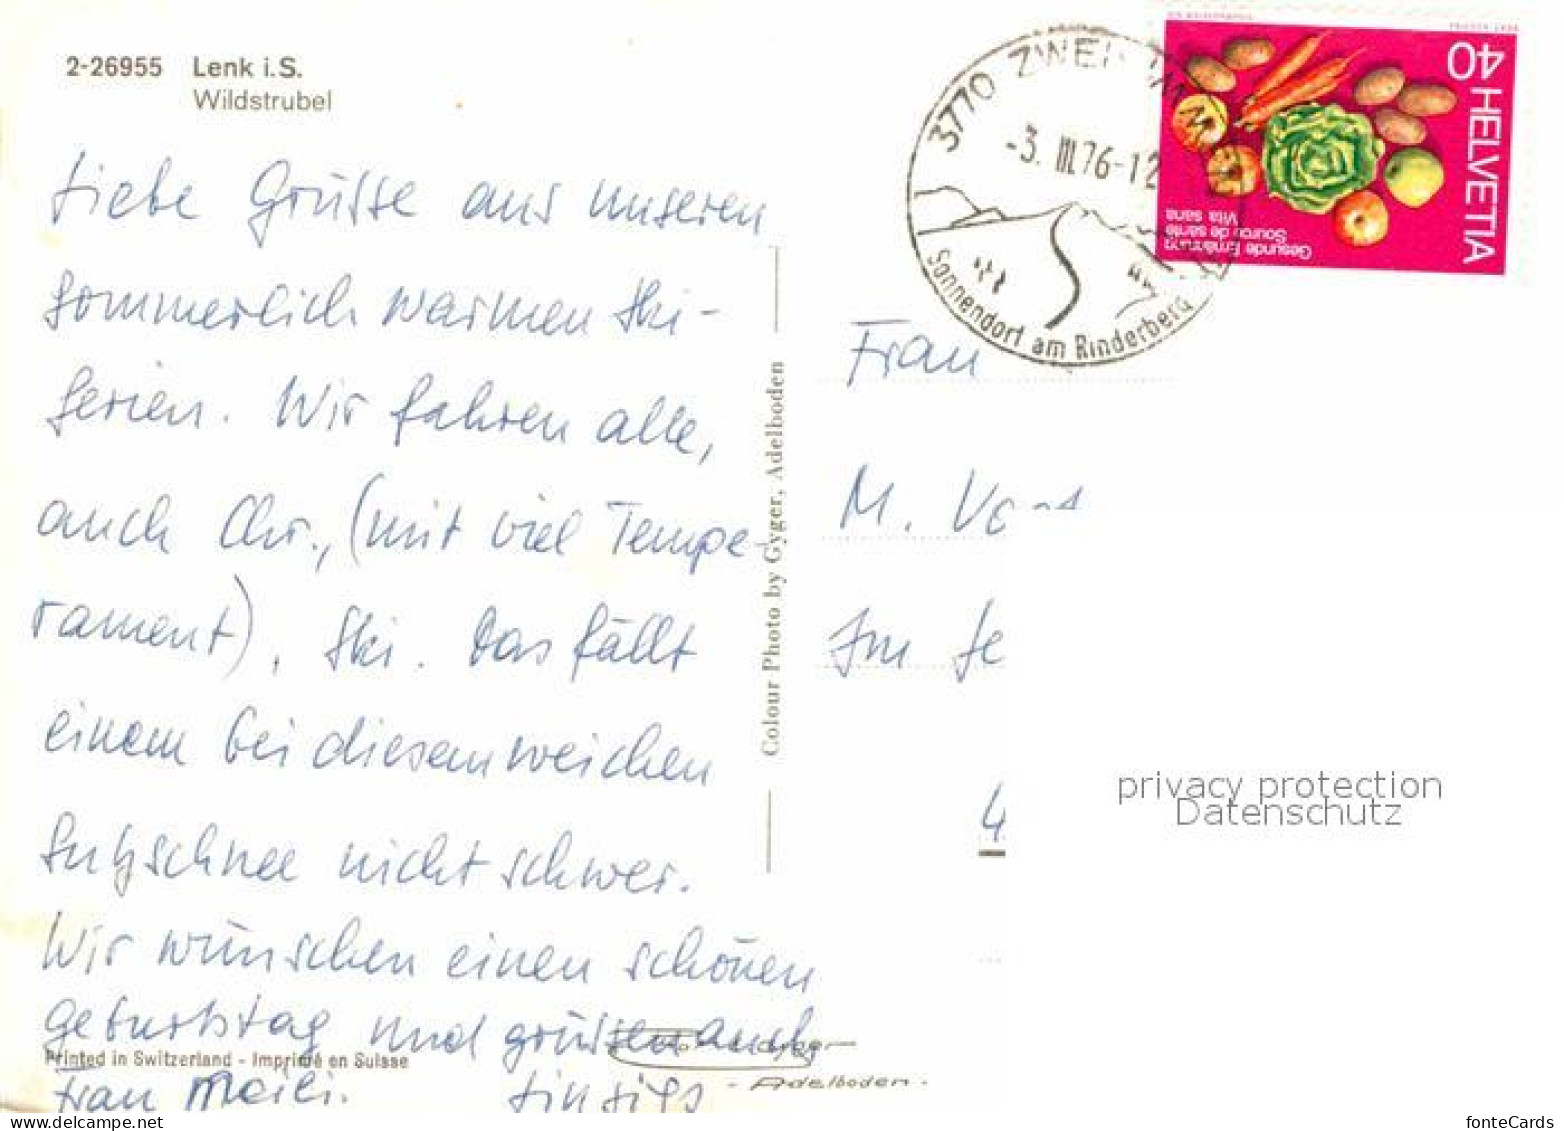 2-26955 Lenk i.S.
Wildstrubel
Liebe Grüsse aus unseren
sommerlich warmen Ski-
ferien. Wir fahren alle,
auch Chr., (mit viel Tempe-
rament), Ski. Das fällt
einem bei diesem weichen
Sulzschnee nicht schwer.
Wir wünschen einen schönen
Geburtstag und grüssen auch
Frau
Printed in Switzerland - Imprimé en Suisse
Colour Photo by Gyger, Adelboden
- Adelboden -
3770 ZWEI
-3. III. 76-12
Sonnendorf am Rinderberg
40 HELVETIA
Gesunde Ernährung
Source de santé
Vita sana
Frau
M.
Im
4
privacy protection
Datenschutz
fonteCards